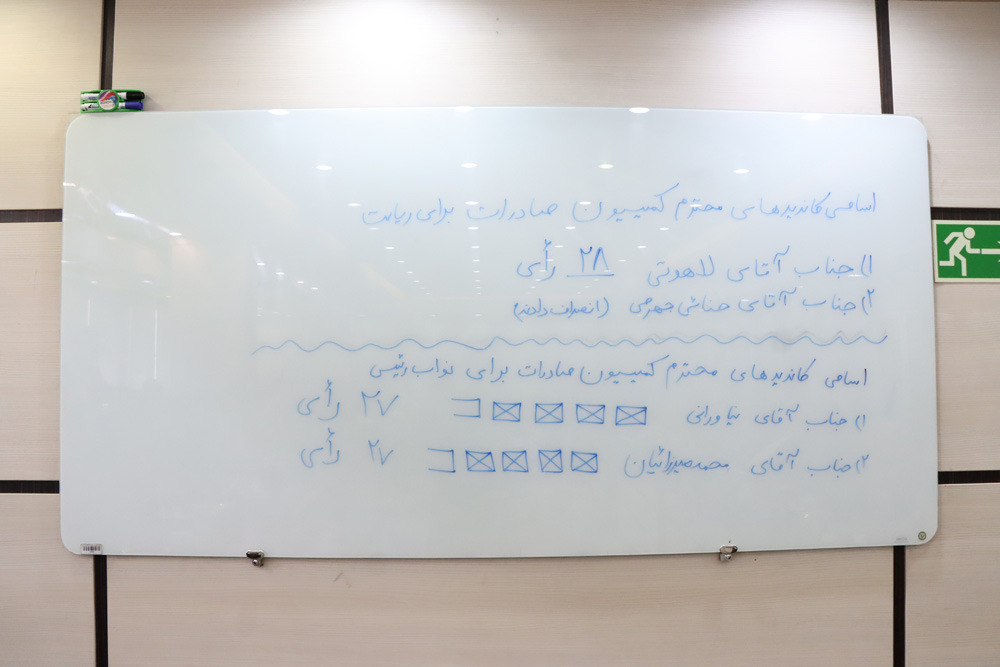 اسامی کاندیدهای محترم کمیسیون صادرات برای ریاست
۱) جناب آقای لاهوتی ۲۸ رأی
۲) جناب آقای حناشی جهرمی (انصراف دادند)
اسامی کاندیدهای محترم کمیسیون صادرات برای نواب رئیس
۱) جناب آقای نیاورانی ۲۷ رأی
۲) جناب آقای محمد میرزائیان ۲۷ رأی